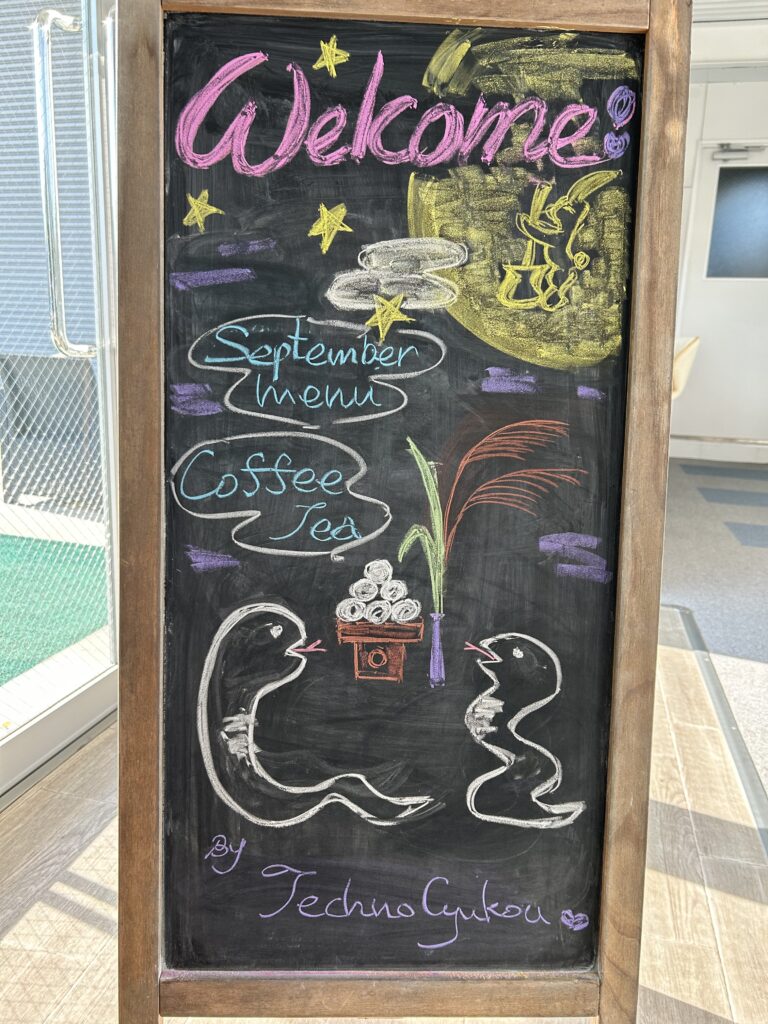 Welcome!
September
menu
Coffee
Tea
By
Techno Cyukou